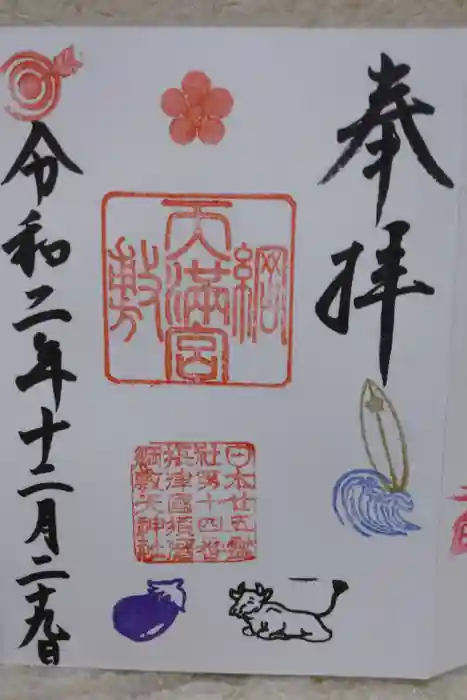 奉拝
綱
天満宮
敷
日本廿五霊
社第十四番
摂津國須磨
綱敷天神社
令和二年十二月二十九日